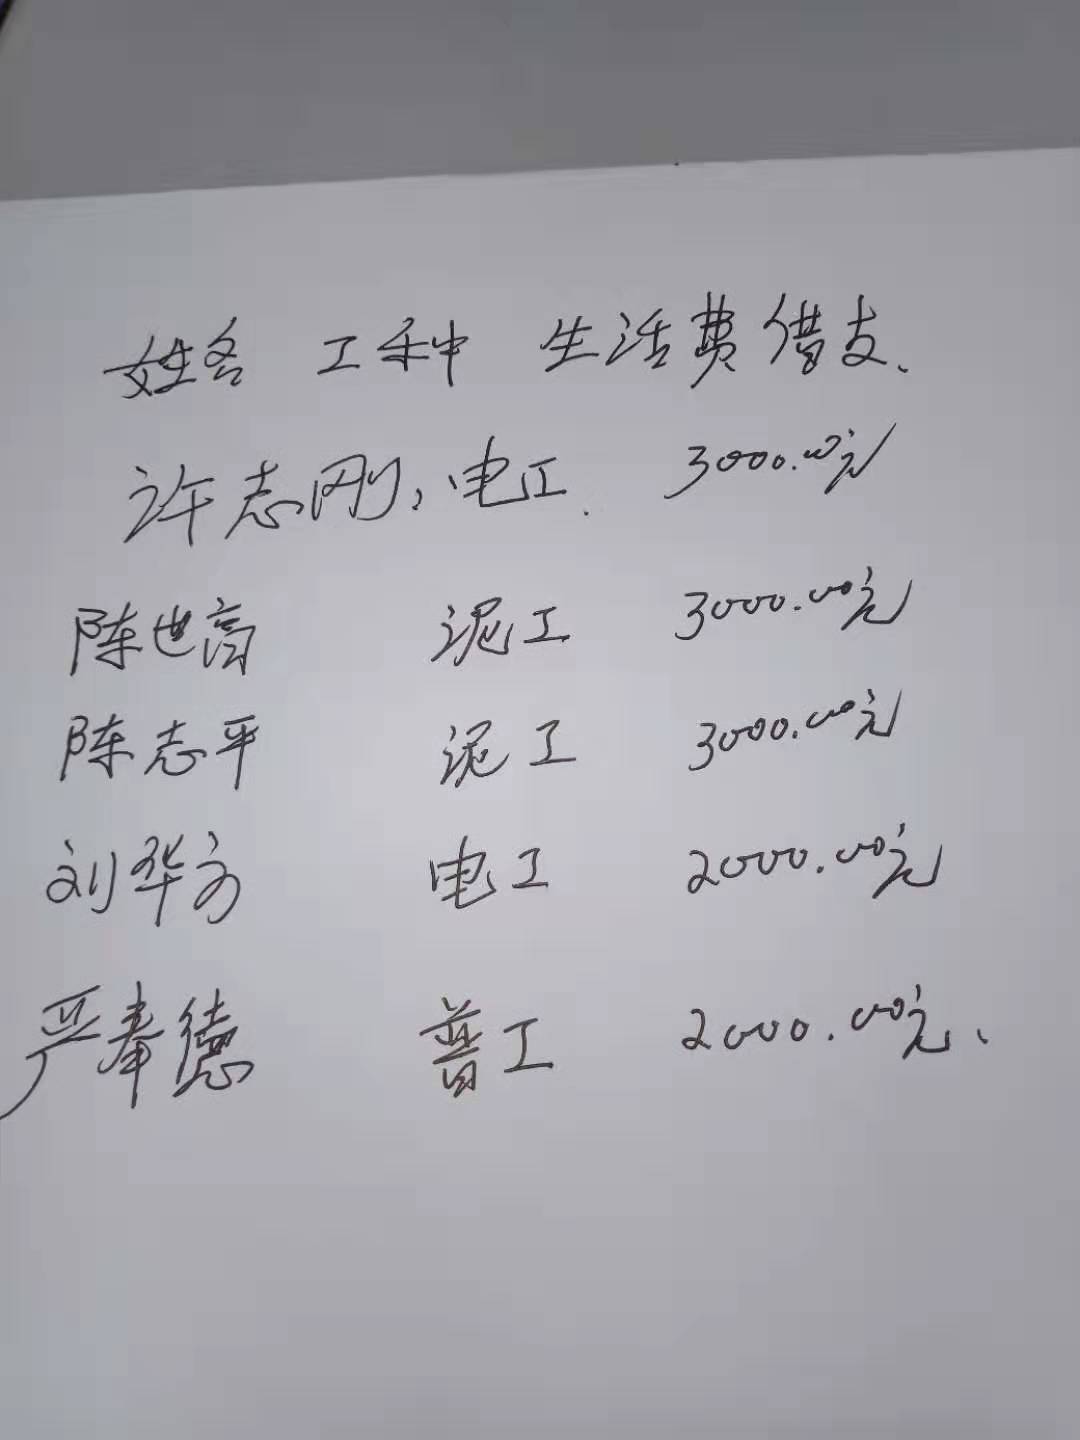 姓名 工种 生活费借支、
许志刚, 电工. 3000.00元
陈世高 泥工 3000.00元
陈志平 泥工 3000.00元
刘华方 电工 2000.00元
严奉德 普工 2000.00元、